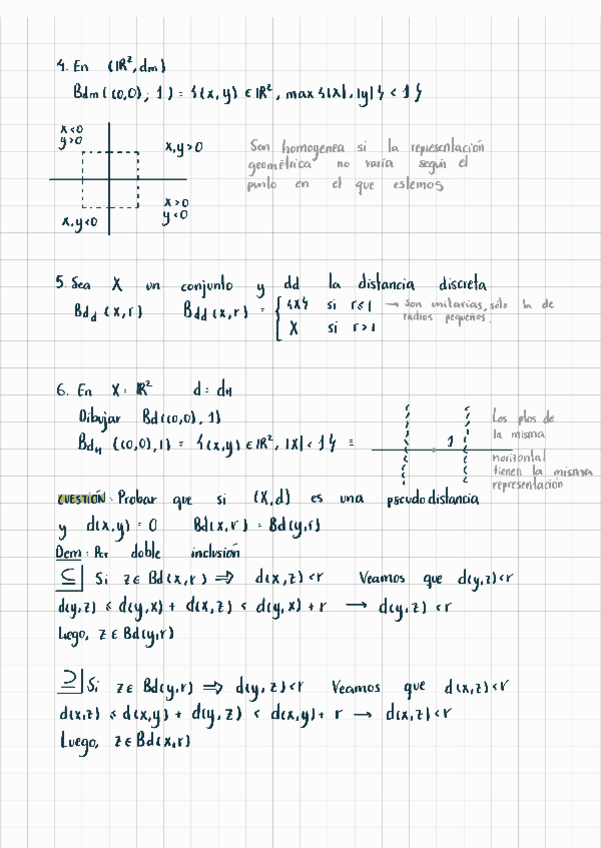 4. En (ℝ², dm)
Bdm((0,0); 1) = {(x,y) ∈ ℝ², max {|x|, |y|} < 1}
x<0
y>0
x,y>0
x,y<0
x>0
y<0
Son homogenea si la representación
geométrica no varía según el
punto en el que estemos
5. Sea X un conjunto y dd la distancia discreta
Bd_d (x,r) Bdd(x,r) = { {x} si r≤1 → son unitarias, sólo la de
radios pequeños.
X si r>1
6. En X = ℝ² d = dH
Dibujar Bd((0,0),1)
Bd_H ((0,0),1) = {(x,y) ∈ ℝ², |x| < 1} =
1
Los ptos de
la misma
horizontal
tienen la misma
representación
CUESTIÓN: Probar que si (X,d) es una pseudodistancia
y d(x,y) = 0 Bd(x,r) = Bd(y,r)
Dem: Por doble inclusión
⊆ Si z ∈ Bd(x,r) ⟹ d(x,z)<r Veamos que d(y,z)<r
d(y,z) ≤ d(y,x) + d(x,z) < d(y,x) + r → d(y,z) < r
Luego, z ∈ Bd(y,r)
⊇ Si z ∈ Bd(y,r) ⟹ d(y,z)<r Veamos que d(x,z)<r
d(x,z) ≤ d(x,y) + d(y,z) < d(x,y) + r → d(x,z)<r
Luego, z ∈ Bd(x,r)